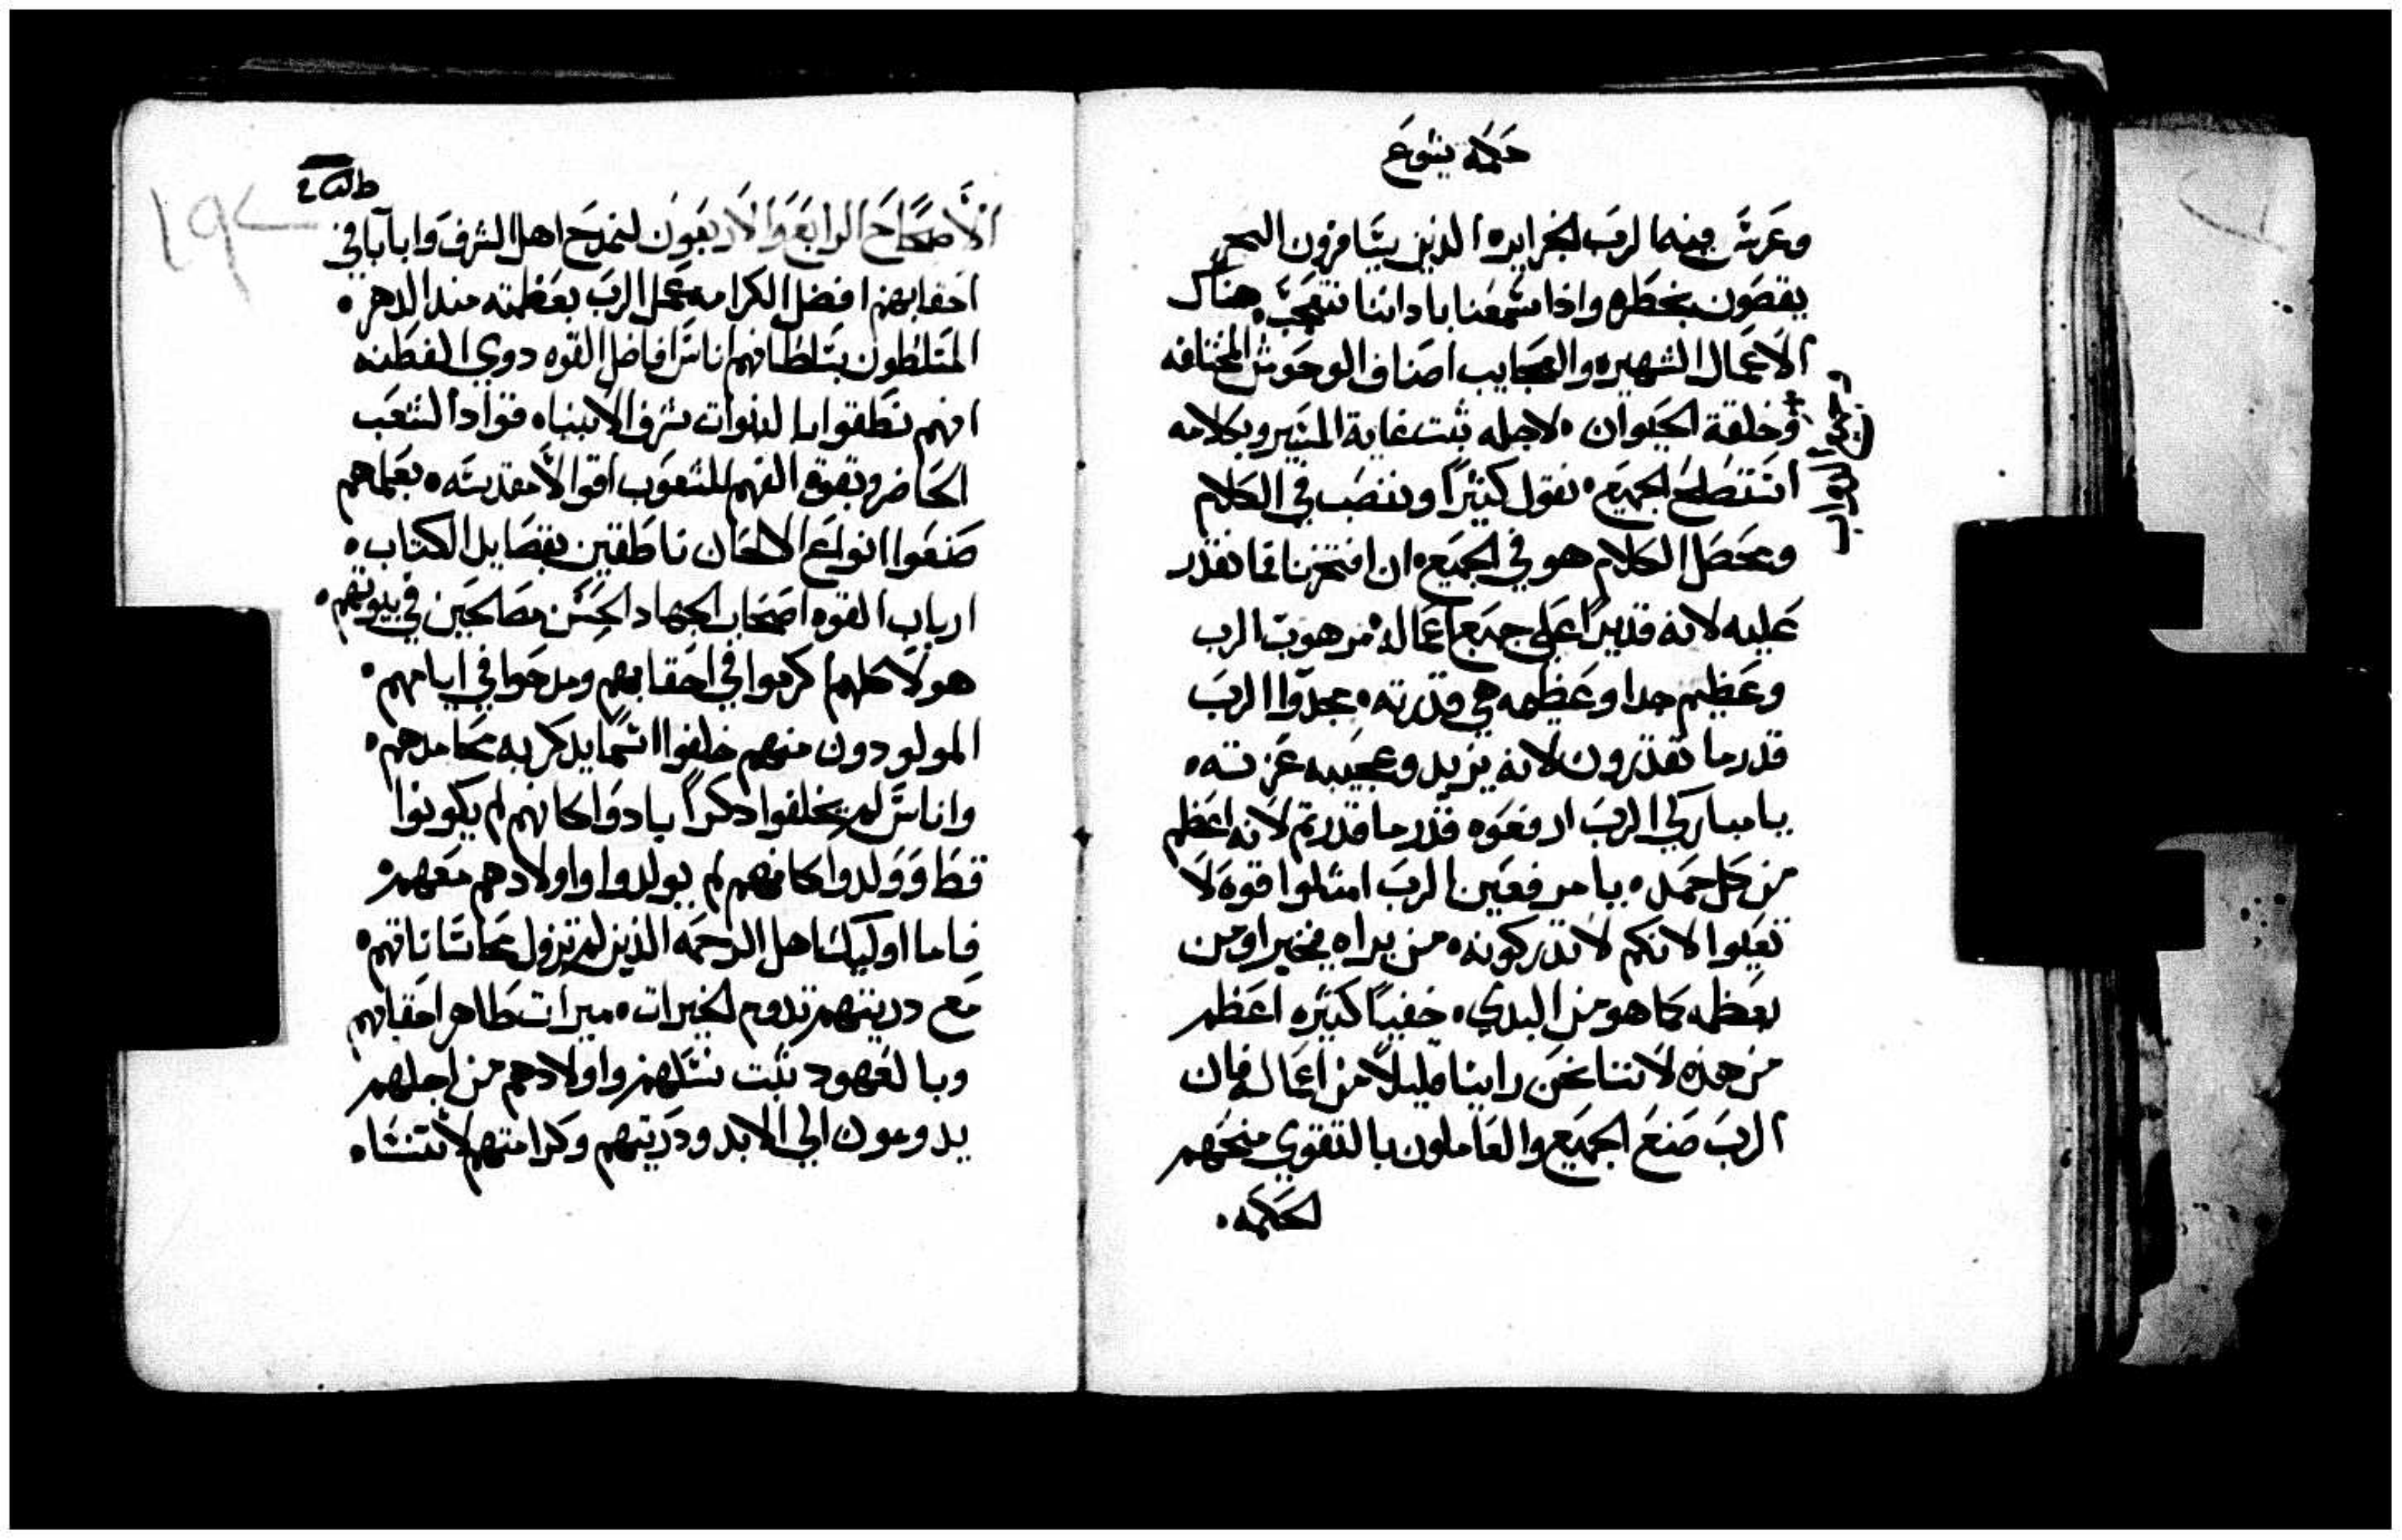 حكمة يشوع
وغرس فيها الرب الجزايره الذين يسافرون البحر
يقصون بخطره واذا سمعنا باداننا نتعجب هناك
الاعمال الشهيره والعجايب اصناف الوحوش المختلفه
وخلقة الحيوان ٠ لاجله ثبت غاية المسير وبكلامه
انتصلح الجميع ٠ نقول كثيراً وننصب في الكلام
ومحصل الكلام هو في الجميع ٠ ان افتخرنا فما نقدر
عليه لانه قديراً على جميع اعماله ٠ مرهوب الرب
وعظيم جدا وعظيمه هي قدرته ٠ مجدوا الرب
قدر ما تقدرون لانه يزيد وعجيبه عزته ٠
يا مباركي الرب ارفعوه قدر ما قدرتم لانه اعظم
من كل حمد ٠ يا مرفعين الرب امتلوا قوه لا
تعيوا لانكم لا تدركونه ٠ من يراه فيخبر او من
يعظمه كما هو من البدي ٠ خفيباً كثيره اعظم
من هذه لاننا نحن راينا قليلاً من اعماله فان
الرب صنع الجميع والعاملون بالتقوي منحهم
الحكمه ٠
الأصحاح الرابع والاربعون لنمدح اهل الشرف وابآيآ في
احقابهم افضل الكرامه عمل الرب بعظمته مند الدهر ٠
المتسلطون بسلطانهم اناس افاضل القوه دوي الفطنه
انهم نطقوا بالنبوات شرف الانبياه قوادا لشعب
الحاضر وبقوة الفهم للشعوب اقوالاً مقدسه ٠ بعملهم
صنعوا انواع الالحان ناطقين بقصايل الكتاب ٠
ارباب القوه اصحاب الجهاد الحسن مصالحين في بيوتهم ٠
هولا كلهم كرموا في احقابهم ومدحوا في ايامهم ٠
المولودون منهم خلفوا اسمًا يدكر به محامدهم ٠
واناس لم يخلفوا دكراً بادوا كانهم لم يكونوا
قط وولدوا كانهم لم يولدوا واولادهم معهم ٠
فاما اوليك اهل الرحمه الذين لم تزول محاسناتهم ٠
مع دريتهم تدوم الخيرات ٠ ميرات طاهر احقابهم
وبالعهود ثبت نسلهم واولادهم من اجلهم
يدومون الي الابد ودريتهم وكرامتهم لا تنتسا ٠